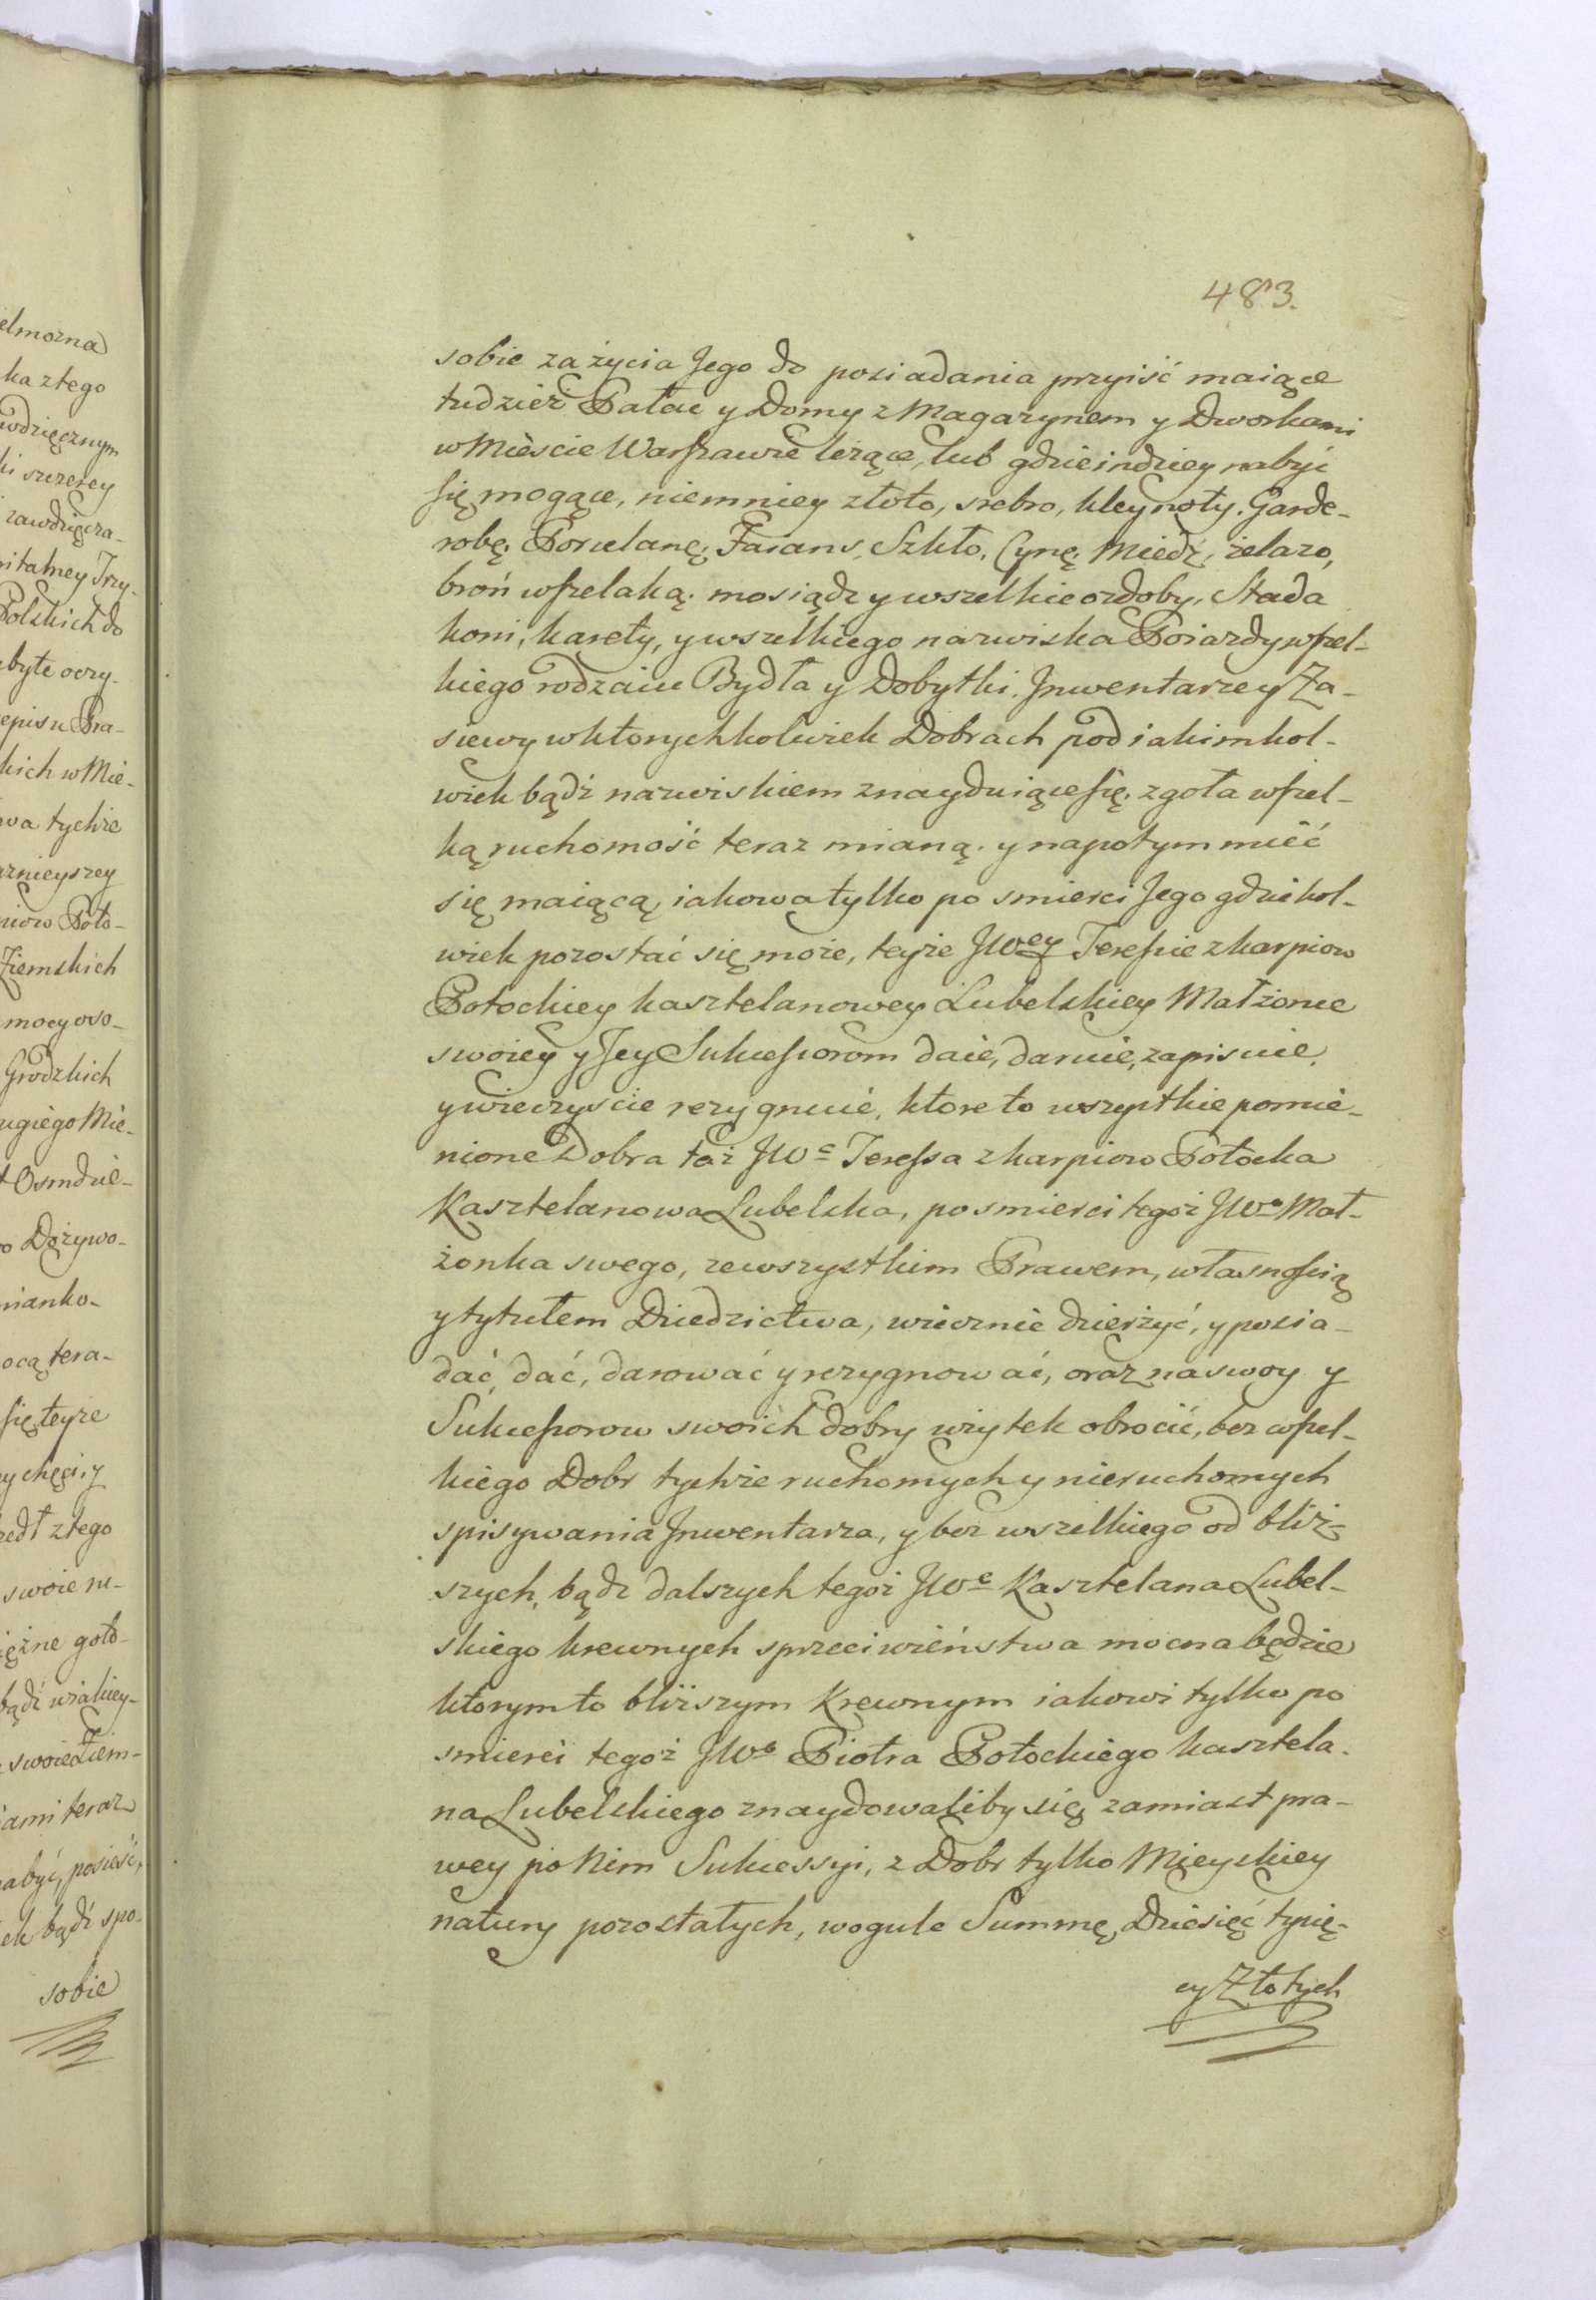 elmozna
ka z tego
wdzięcznym
ki szczerey
zawdzięcza-
nitalney Trzy-
Polskich do
byte oczy-
episu Pra-
kich w Mie-
wa tychże
znieyszey
niow Poto-
Ziemskich
mocy oso-
Grodzkich
ugiego Mie-
t Osmdzie-
o Dożywo-
nianko-
ocą tera-
się teyże
y chęci, y
zedł z tego
swoie ru-
iężne goto-
bądź w iakiey-
swoie Ziem-
iami teraz
nabyć, posieść,
ek bądź spo-
sobie
483.
sobie za życia Jego do posiadania przyiść maiące
tudzież Pałac y Domy z Magazynem y Dworkami
w Mieście Warszawie leżące, lub gdzieindziey nabyć
się mogące, niemniey złoto, srebro, kleynoty, Garde-
robę, Porcelanę, Farans, Szkło, Cynę, Miedź, żelazo,
broń wszelaką, mosiądz y wszelkie ozdoby, Stada
koni, karety, y wszelkiego nazwiska Poiazdy wszel-
kiego rodzaiu Bydła y Dobytki, Inwentarze y Za-
siewy w ktorychkolwiek Dobrach pod iakimkol-
wiek bądź nazwiskiem znayduiące się, zgoła wszel-
ką ruchomość teraz mianą, y napotym mieć
się maiącą, iakowa tylko po smierci Jego gdziekol-
wiek pozostać się może, teyże JWey Teressie z karpiow
Potockiey kasztelanowey Lubelskiey Małżonce
swoiey y Jey Sukcessorom daie, daruie, zapisuie,
y wieczyscie rezygnuie, ktore to wszystkie pomie-
nione Dobra taż JWa Teressa z karpiow Potocka
Kasztelanowa Lubelska, po smierci tegoż JWo Mał-
żonka swego, zewszystkim Prawem, własnością
y tytułem Dziedzictwa, wiecznie dzierżyć, y posia-
dać, dać, darować y rezygnować, oraz na swoy y
Sukcessorow swoich dobry użytek obrocić, bez wszel-
kiego Dobr tychże ruchomych y nieruchomych
spisywania Inwentarza, y bez wszelkiego od bliż-
szych, bądz dalszych tegoż JWo Kasztelana Lubel-
skiego krewnych sprzeciwieństwa mocna będzie
ktorym to bliższym Krewnym iakowi tylko po
smierci tegoż JWo Piotra Potockiego kasztela-
na Lubelskiego znaydowaliby się, zamiast pra-
wey po Nim Sukcessyi, z Dobr tylko Mieyskiey
natury pozostałych, wogule Summę Dziesięć tysię-
cy Złotych